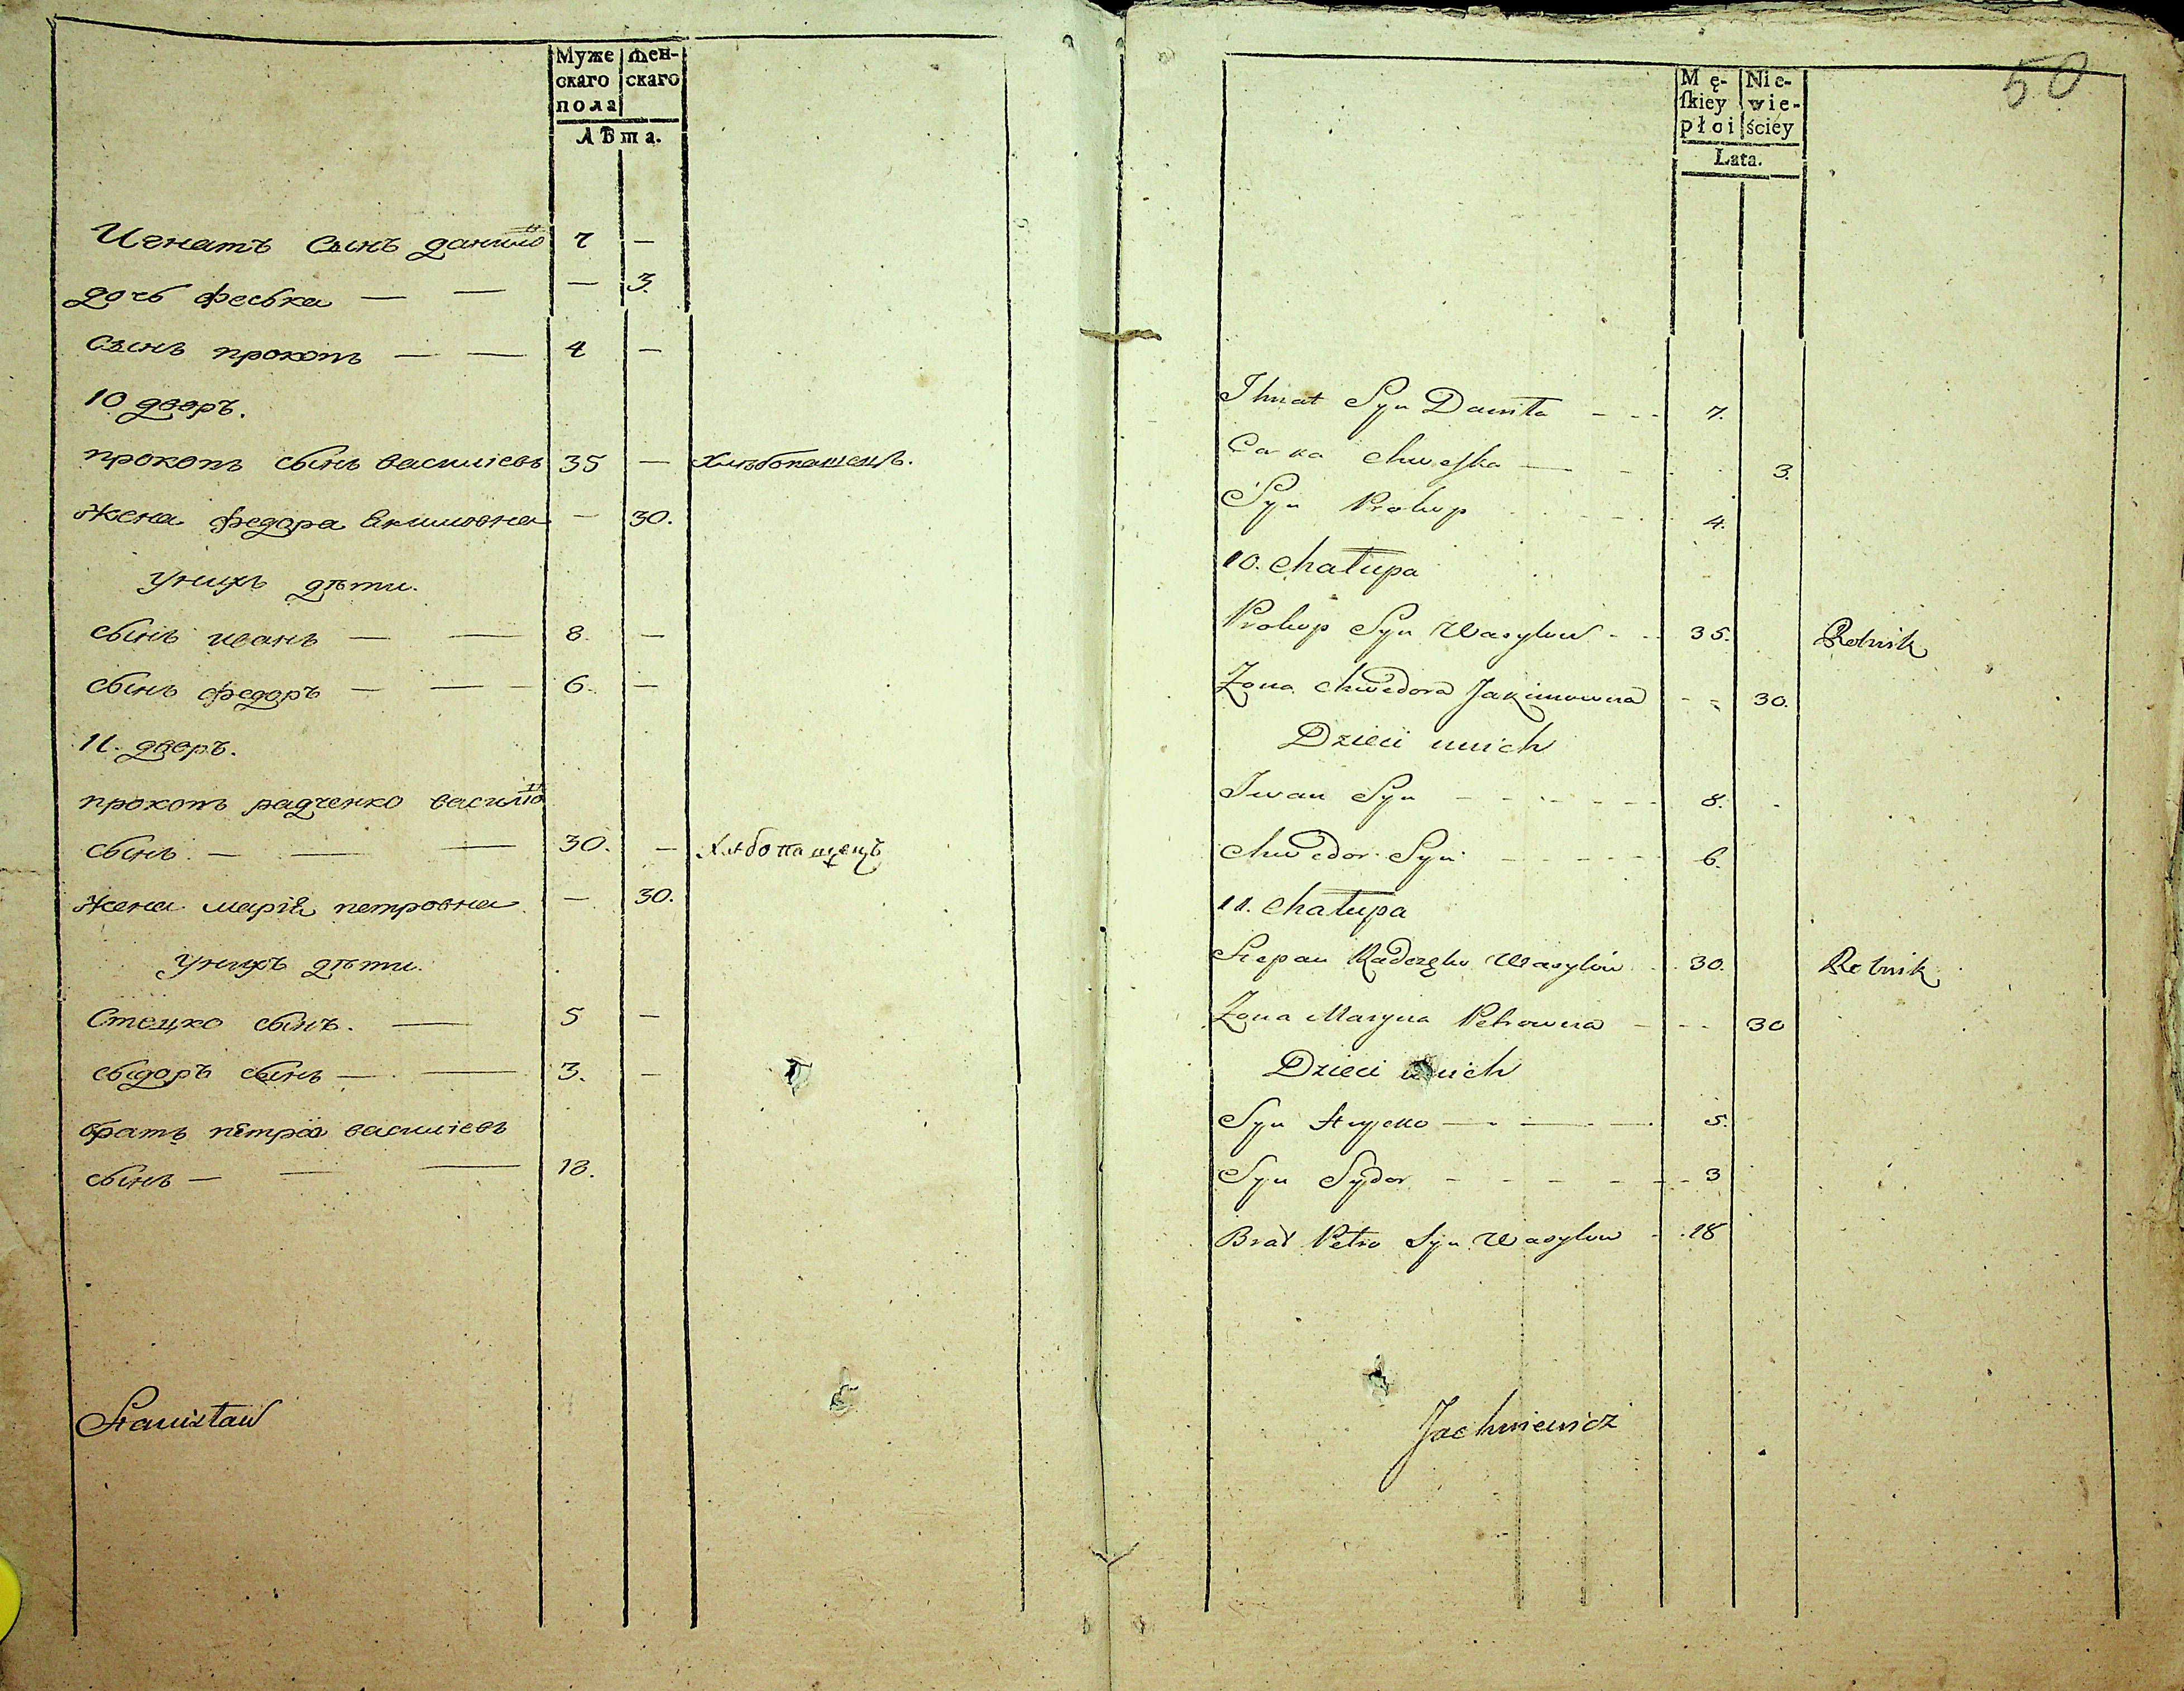 Муже- Жен-
скаго скаго
пола
Лѣта.
Игнатъ Сынъ данило 7 —
дочь феська — — — 3.
Сынъ прокопъ — — 4 —
10 дворъ.
прокопъ сынъ василіевъ 35 — Хлѣбопашецъ.
Жена федора Екимовна — 30.
унихъ дѣти.
сынъ иванъ — — 8. —
сынъ федоръ — — 6. —
11. дворъ.
прокопъ радченко василіо
сынъ. — — — 30. — Хлѣбопашецъ
Жена марія петровна — 30.
унихъ дѣти.
Стецко сынъ. — 5 —
сыдоръ сынъ — — 3. —
братъ петро василіевъ
сынъ — — — 18.
Stanisław
50
Mę- Nie-
ſkiey wie-
płci ściey
Lata.
Ihnat Syn Daniła - - - 7.
Carka Chweſka — - - 3.
Syn Prokop - - - 4.
10. Chałupa
Prokop Syn Wasylow - - 35. Rolnik
Zona Chwedora Jakimowna - - 30.
Dzieci unich
Iwan Syn - - - - - - 8.
Chwedor Syn - - - - - 6.
11. Chałupa
Stepan Radczęko Wasylow 30. Rolnik
Zona Maryna Petrowna - - - 30
Dzieci unich
Syn Stecko — — — 5.
Syn Sydor - - - - - - 3
Brat Petro Syn Wasylow - 18
Jachniewicz